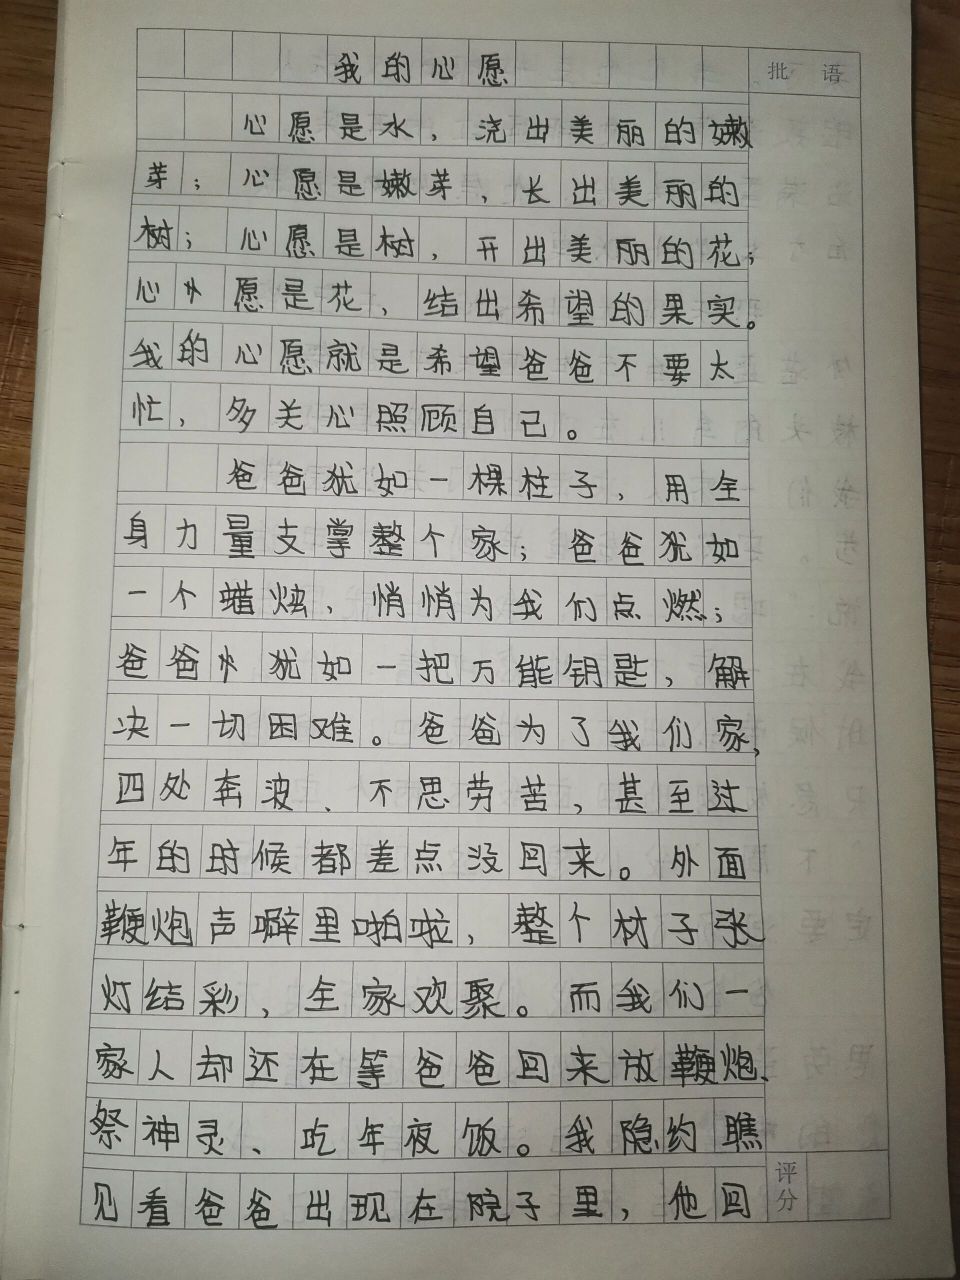 我的心愿
批语
心愿是水，浇出美丽的嫩
芽；心愿是嫩芽，长出美丽的
树；心愿是树，开出美丽的花；
心愿是花，结出希望的果实。
我的心愿就是希望爸爸不要太
忙，多关心照顾自己。
爸爸犹如一棵柱子，用全
身力量支掌整个家；爸爸犹如
一个蜡烛，悄悄为我们点燃；
爸爸犹如一把万能钥匙，解
决一切困难。爸爸为了我们家，
四处奔波、不思劳苦，甚至过
年的时候都差点没回来。外面
鞭炮声噼里啪啦，整个村子张
灯结彩，全家欢聚。而我们一
家人却还在等爸爸回来放鞭炮、
祭神灵、吃年夜饭。我隐约瞧
见看爸爸出现在院子里，他回
评分